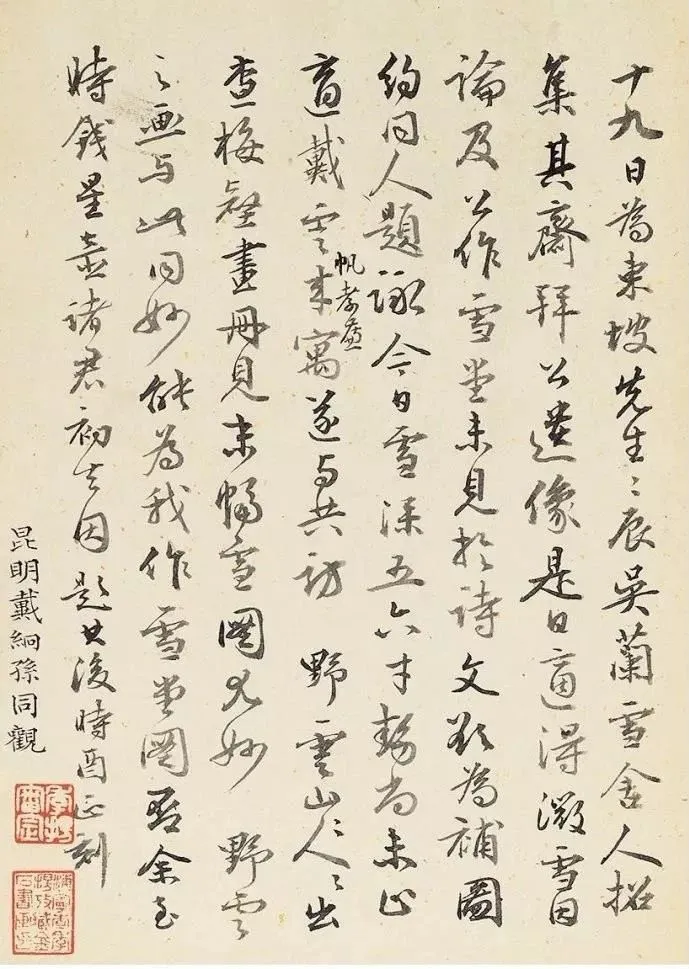 十九日為東坡先生〻辰吳蘭雪舍人招
集其齋拜公遺像是日適得微雪因
論及公作雪堂未見於詩文欲為補圖
約同人題詠今日雪深五六寸勢尚未止
適戴雲帆孝廉來寓遂与共訪 野雲山人〻出
查梅壑畫冊見末幅雪圖尤妙 野雲
之畫与此同妙能為我作雪堂圖否余至
時錢星壺諸君初去因題其後時酉正刻
昆明戴絅孫同觀